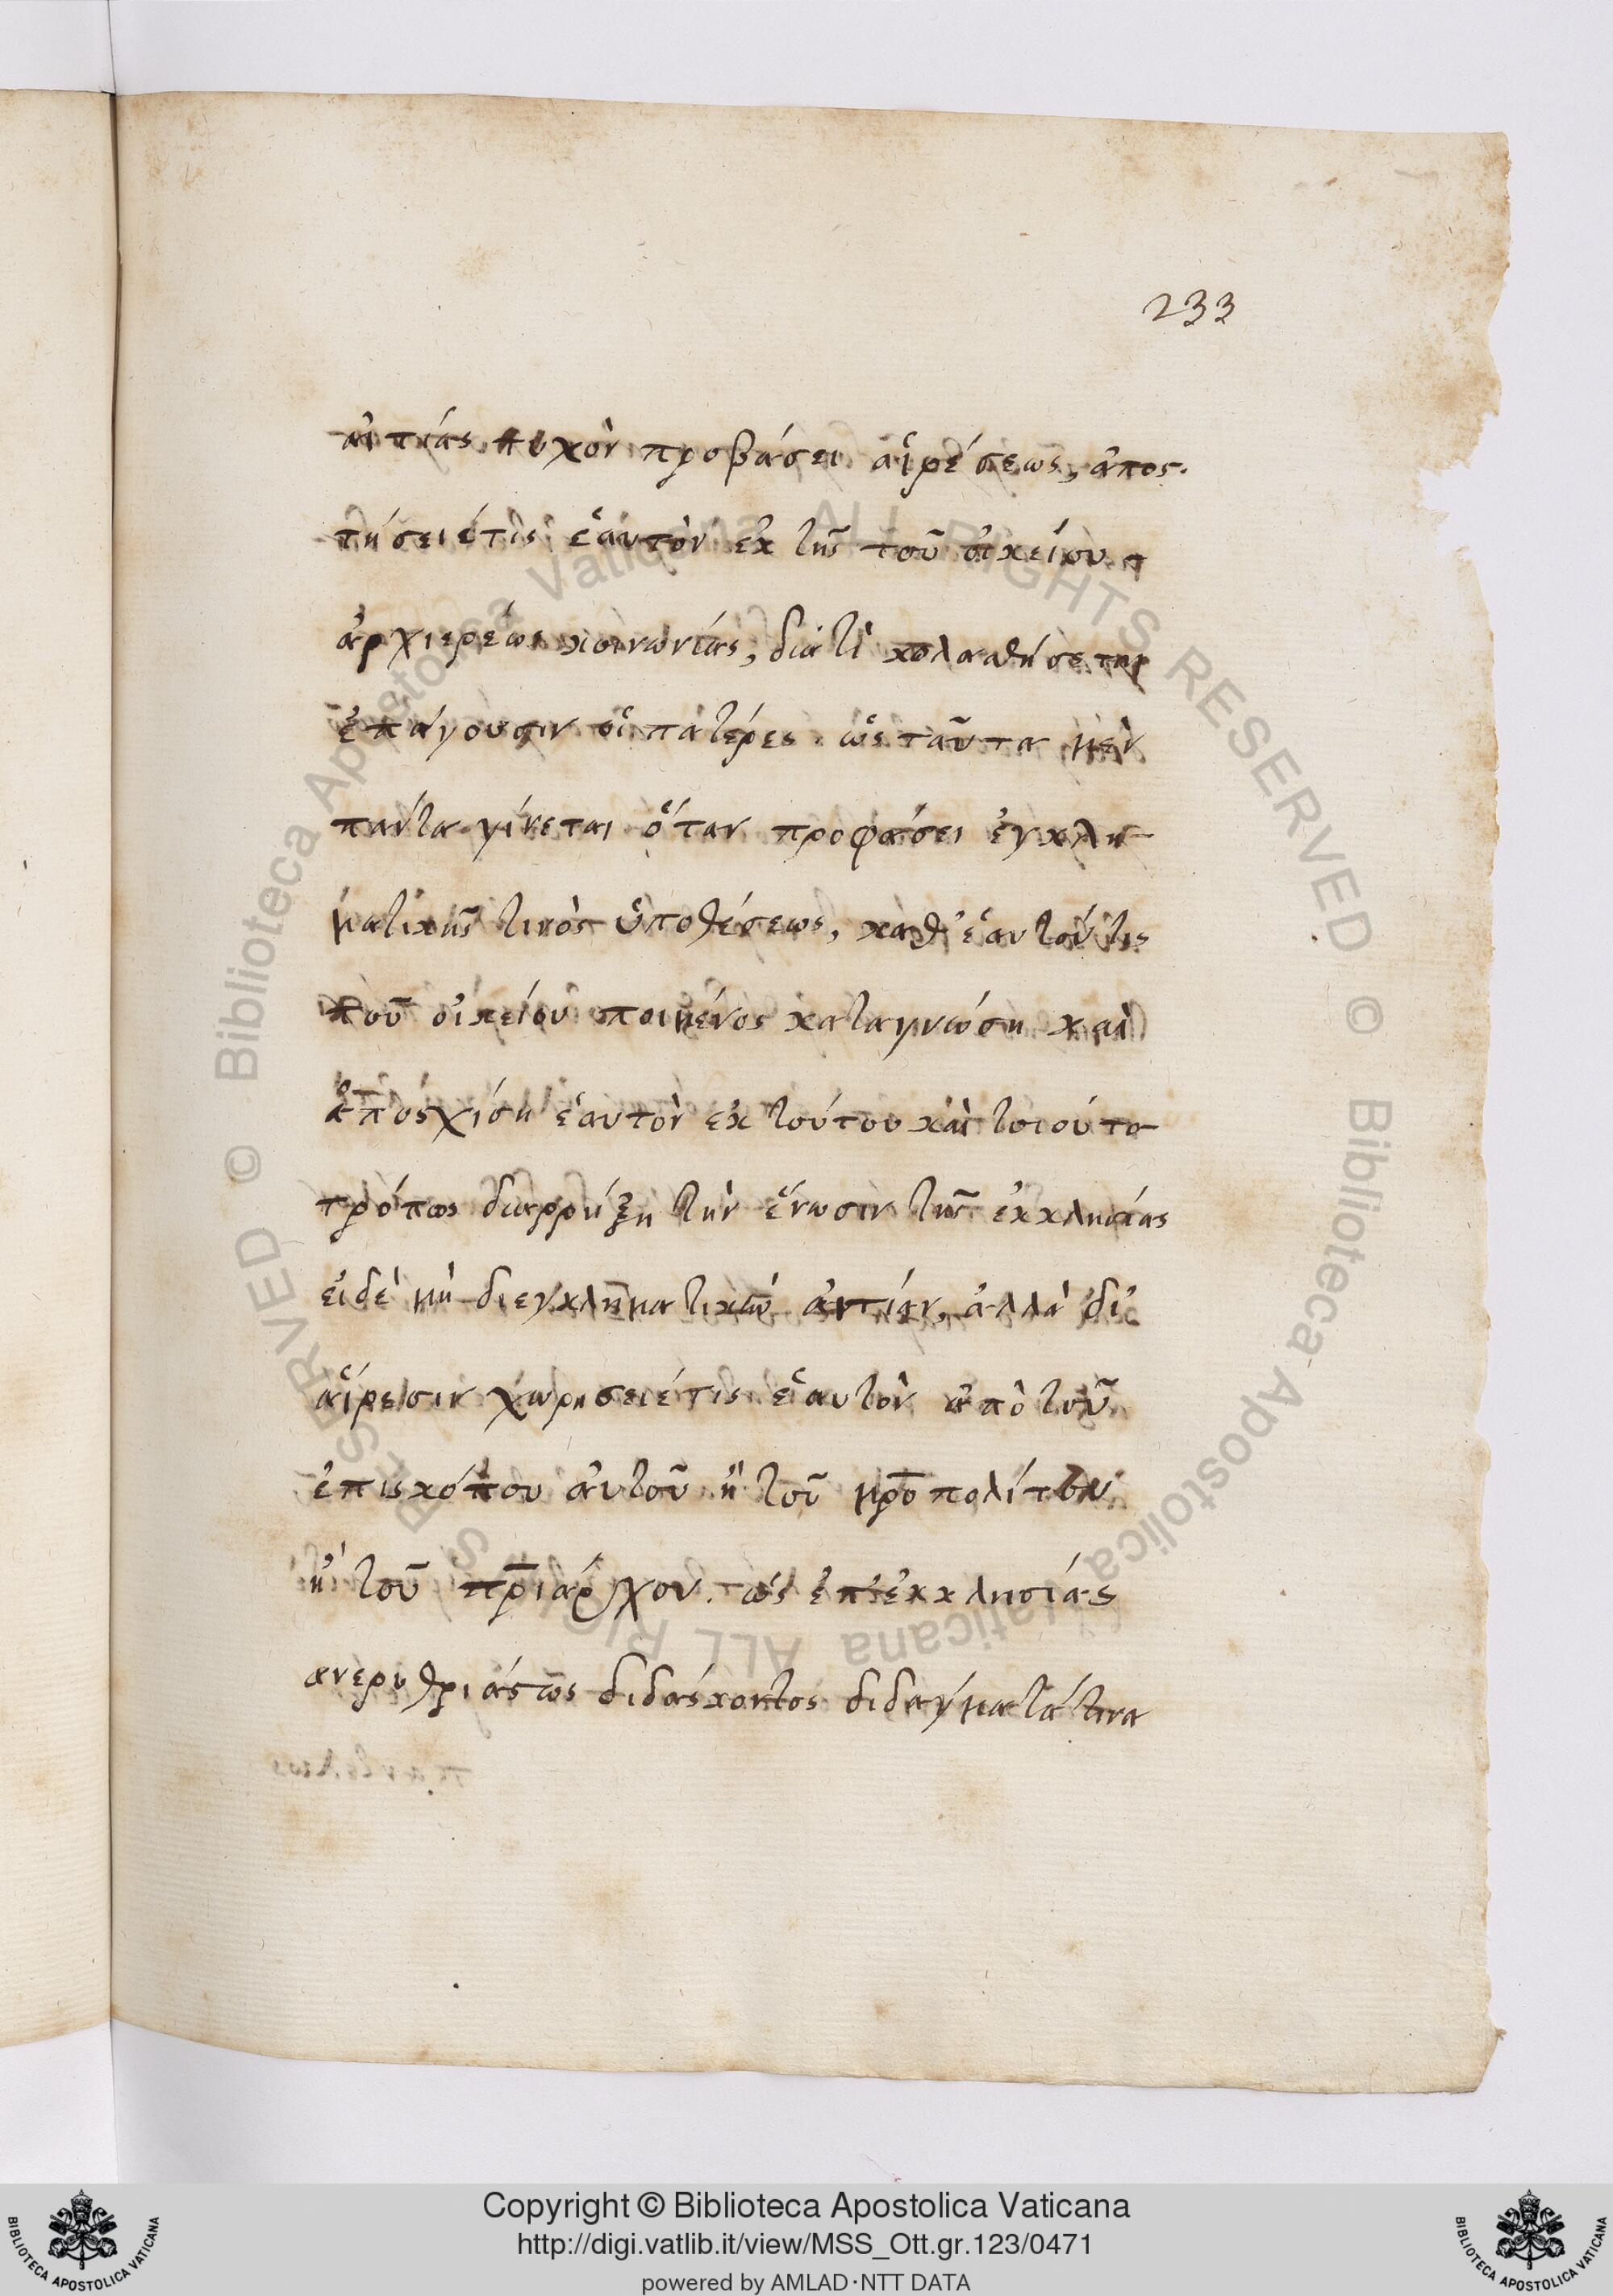 233
αἰτίας τυχὸν προβάσει αἱρέσεως, ἀπος·
τήσειέ τις ἑαυτὸν ἐκ τῆς τοῦ οἰκείου
ἀρχιερέως κοινωνίας, διατί κολασθήσεται
ἐπάγουσιν οἱ πατέρες. ὡς ταῦτα μὲν
πάντα γίνεται ὅταν προφάσει ἐγκλη-
ματικῆς τινὸς ὑποθέσεως, καθ' ἑαυτοῦ τις
τοῦ οἰκείου ποιμένος καταγνώση καὶ
ἀποσχίση ἑαυτὸν ἐκ τούτου καὶ τοιούτο
τρόπως διαρρήξη τὴν ἕνωσιν τῆς ἐκκλησίας
εἰδὲ μὴ διεγκληματικὴν ἀιτίαν, ἀλλὰ δι'
αἵρεσιν χωρησειέ τις ἑαυτὸν ἀπὸ τοῦ
ἐπισκόπου ἀυτοῦ ἢ τοῦ μρ̅οπολίτου
ἢ τοῦ πρ̅ιάρχου. ὡς ἐπ' ἐκκλησίας
ανερυθριάστως διδάσκοντος διδαγματά τινα
Copyright © Biblioteca Apostolica Vaticana
http://digi.vatlib.it/view/MSS_Ott.gr.123/0471
powered by AMLAD·NTT DATA
BIBLIOTECA APOSTOLICA VATICANA
BIBLIOTECA APOSTOLICA VATICANA
© Biblioteca Apostolica Vaticana ALL RIGHTS RESERVED © Biblioteca Apostolica Vaticana ALL RIGHTS RESERVED